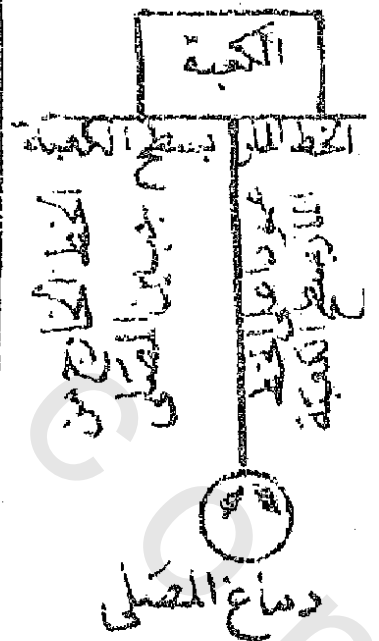 الكعبة
الخط المار بسطح الكعبة
الخط الخارج من
جبين المصلى
عمودا على الخط
المار بسطح الكعبة
دماغ المصلى